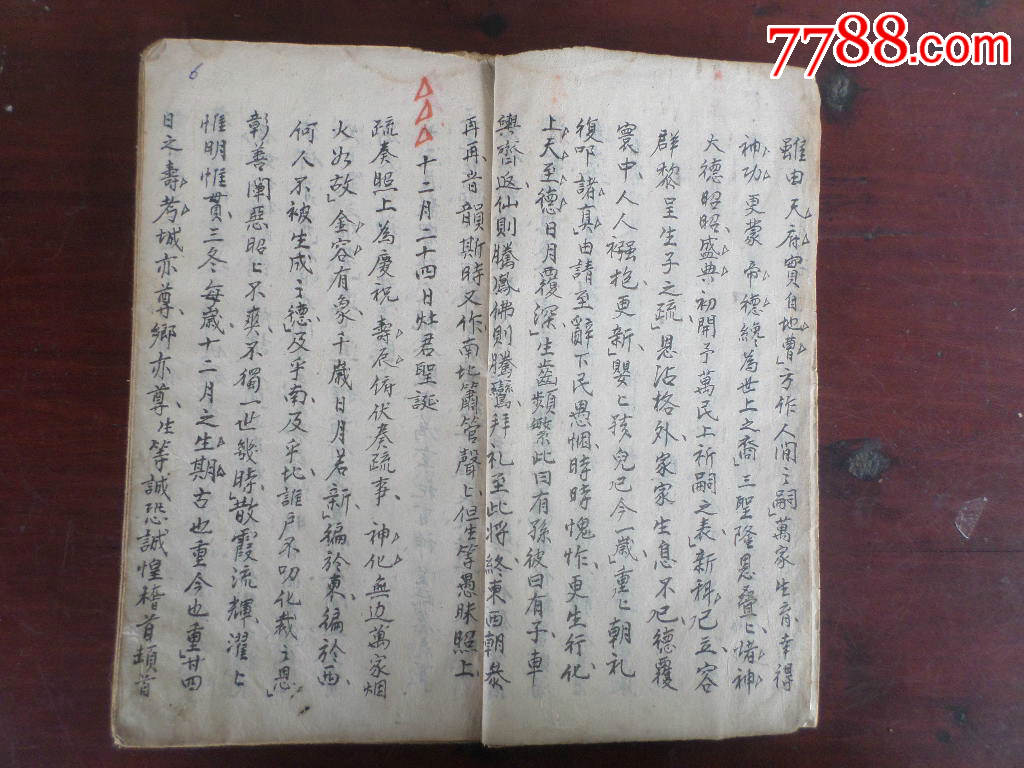 7788.com
雖由天府實自地曹方作人间之嗣萬家生育幸得
神功更蒙帝德終為世上之裔三聖隆恩疊〻惟神
大德昭昭盛典初開予萬民上祈嗣之表新科已立容
群黎呈生子之疏恩沾格外家家生息不已德覆
寰中人人襁抱更新嬰〻孩兒已今一歲重〻朝礼
復叩諸真由請至辭下民愚悃時時愧怍更生行化
上天至德日月覆深生齒頻繁此曰有孫彼曰有子車
輿齊返仙則騰鳳佛則騰鸞拜礼至此将終東西朝叅
再再音韻斯時又作南北簫管聲〻但生等愚昧照上
十二月二十四日灶君聖誕
疏奏照上為慶祝壽辰俯伏奏疏事神化無边萬家烟
火如故金容有象千歲日月若新徧於東徧於西
何人不被生成之德及乎南及乎北誰户不叨化裁之恩
彰善闡惡昭〻不爽不獨一世幾時散霞流輝濯〻
惟明惟貫三冬每歲十二月之生期古也重今也重廿四
日之壽考城亦尊鄉亦尊生等誠恐誠惶稽首頓首
6